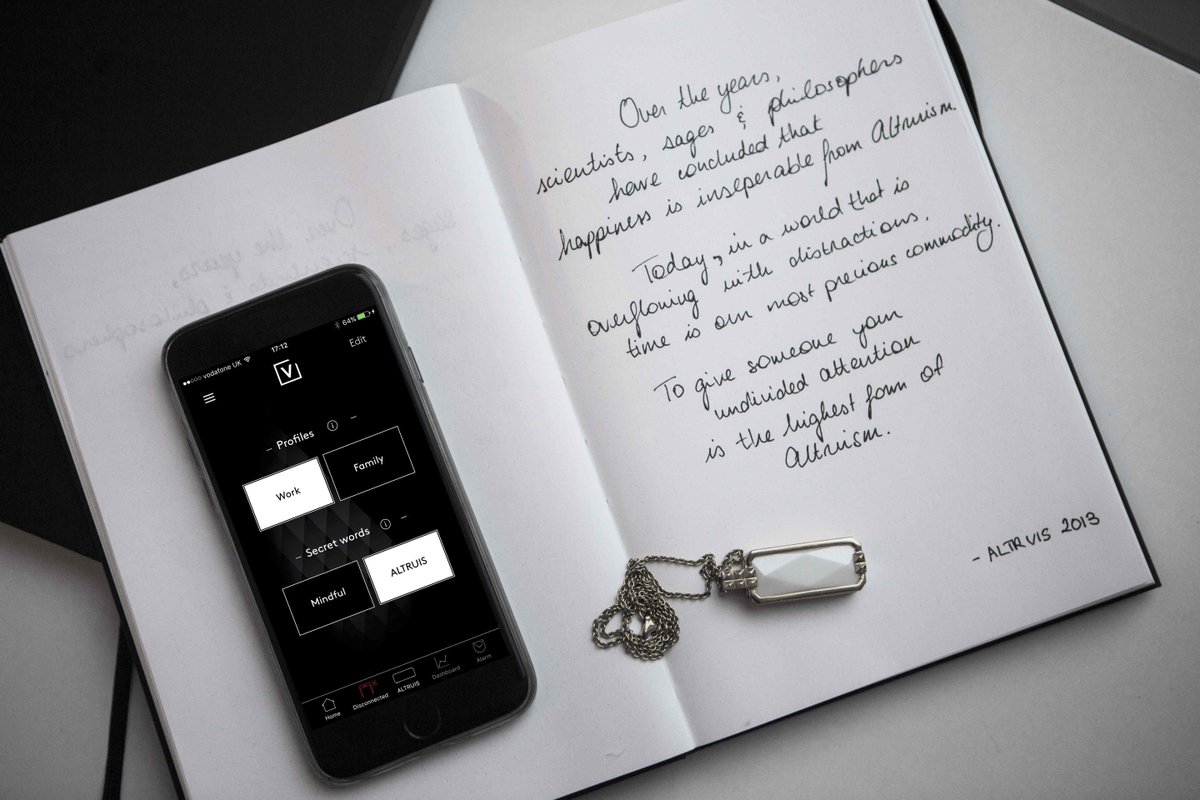 Over the years,
scientists, sages & philosophers
have concluded that
happiness is inseperable from Altruism.
Today, in a world that is
overflowing with distractions,
time is our most precious commodity.
To give someone your
undivided attention
is the highest form of
Altruism.
- ALTRUIS 2013
vodafone UK 17:12 64%
V
Edit
- Profiles -
Work Family
- Secret words -
Mindful ALTRUIS
Home Disconnected ALTRUIS Dashboard Alarm